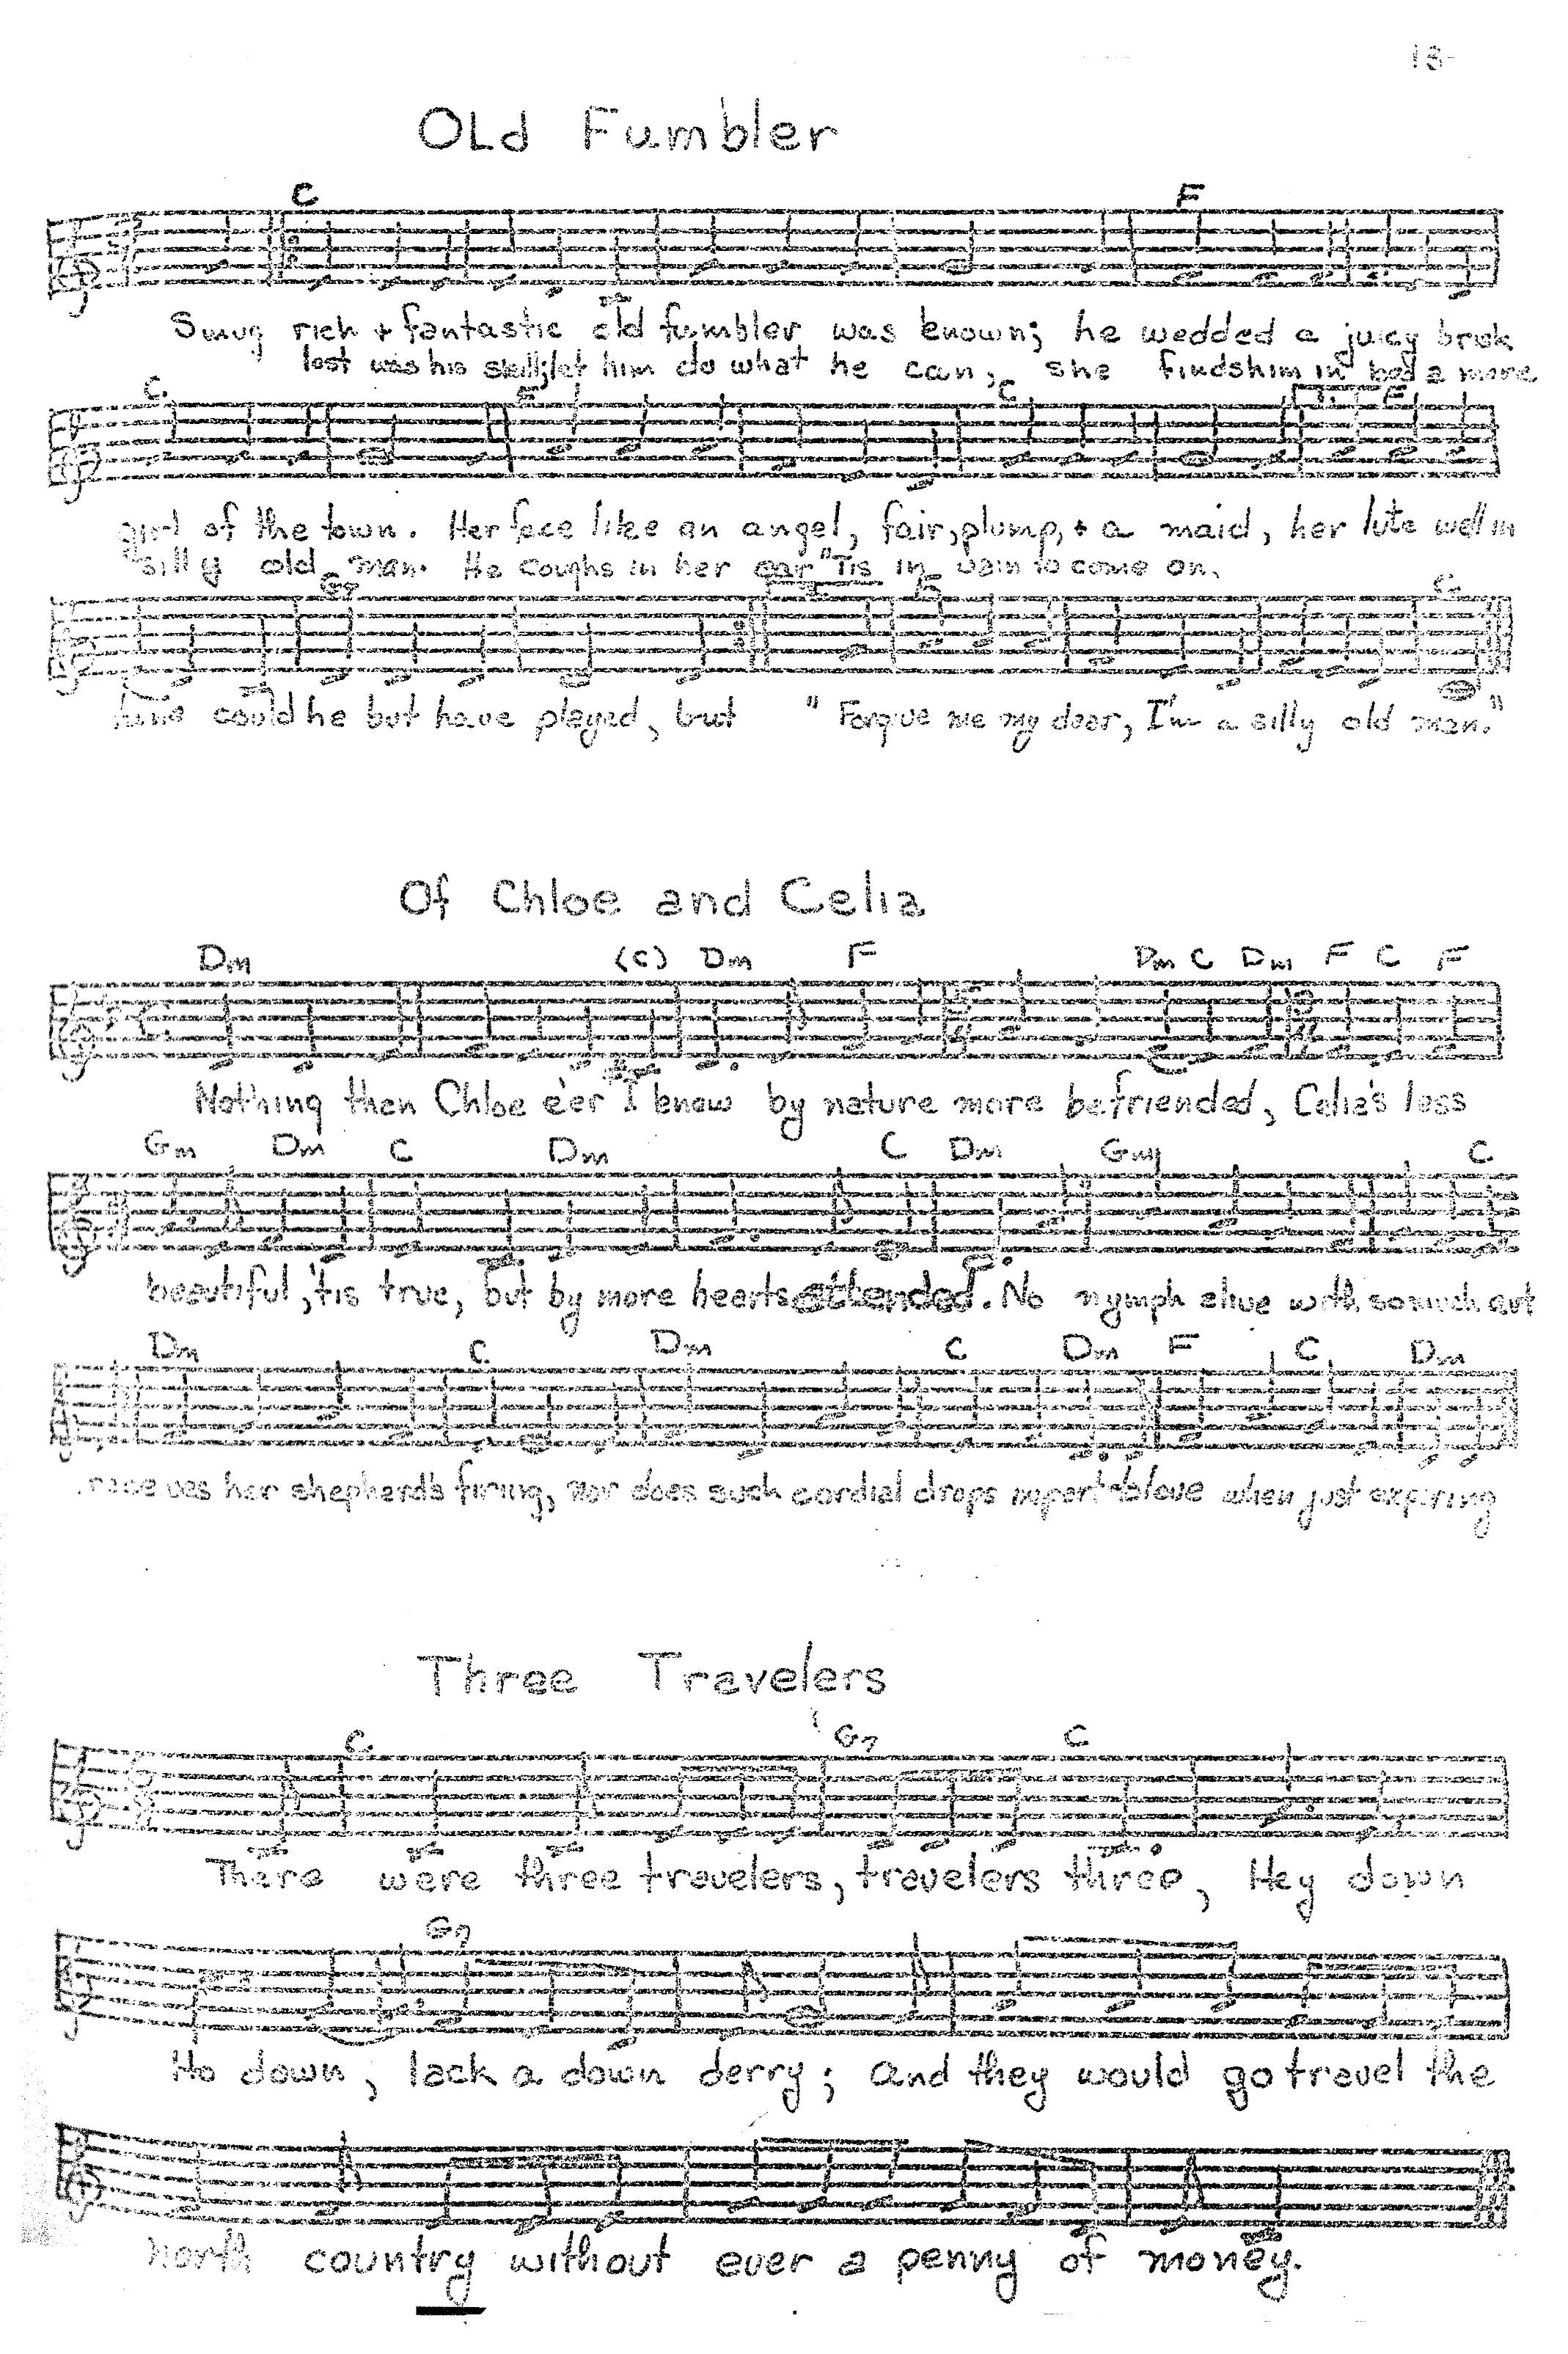 Old Fumbler
C F
Smug rich + fantastic old fumbler was known; he wedded a juicy brisk
lost was his skill; let him do what he can, she finds him in bed a more
C C F
girl of the town. Her face like an angel, fair, plump, + a maid, her lute well in
silly old man. He coughs in her ear "Tis in vain to come on,
G7 C
tune could he but have played, but "Forgive me my dear, I'm a silly old man."
Of Chloe and Celia
Dm (C) Dm F Dm C Dm F C F
Nothing then Chloe e'er I knew by nature more befriended, Celia's less
Gm Dm C Dm C Dm Gm C
beautiful, 'tis true, but by more hearts attended. No nymph alive with so much art
Dm C Dm C Dm F C Dm
receives her shepherd's firing, nor does such cordial drops impart to love when just expiring
Three Travelers
C G7 C
There were three travelers, travelers three, Hey down
G7
Ho down, lack a down derry; and they would go travel the
north country without ever a penny of money.